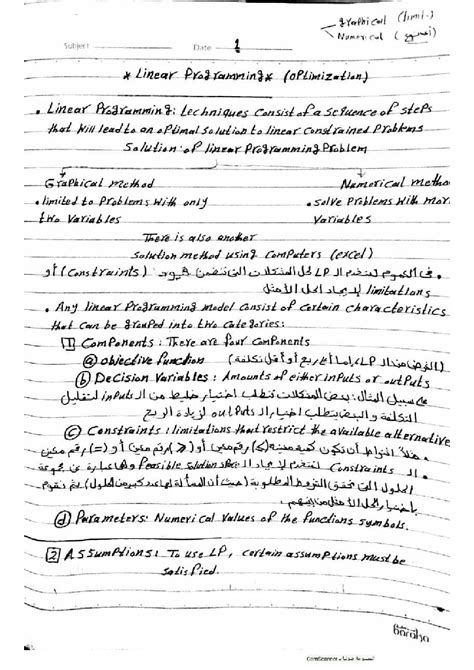 graphical (limit)
Numerical (
Subject
Date 1
* Linear Programming * (optimization)
• Linear Programming: techniques consist of a sequence of steps
that will lead to an optimal solution to linear constrained Problems
Solution of linear Programming Problem
Graphical method
Numerical method
• limited to Problems with only
• solve Problems with more
two Variables
Variables
There is also another
solution method using computers (excel)
• في العموم نستخدم الـ LP لحل المشكلات التي تتضمن قيود (Constraints) أو
limitations لإيجاد الحل الأمثل
• Any linear Programming model consist of certain characteristics
that can be grouped into two categories:
1 Components: There are four components
(a) objective function (الغرض من الـ LP، إما أعلى ربح أو أقل تكلفة)
(b) Decision Variables: Amounts of either inputs or outputs
على سبيل المثال: بعض المشكلات تتطلب اختيار خليط من الـ inputs لتقليل
التكلفة والبعض يتطلب اختيار الـ outputs لزيادة الربح
(c) Constraints: limitations that restrict the available alternatives
مثلاً: اشتراط أن تكون كمية معينة (≤) رقم معين أو (≥) رقم معين أو (=) رقم معين
الـ Constraints تستخدم لإيجاد الـ Feasible solution space وهنا عبارة عن مجموعة
الحلول التي تحقق الشروط المطلوبة (حيث أن المسألة لها عدد كبير من الحلول) ثم نقوم
باختيار الحل الأمثل من بينهم.
(d) Parameters: Numerical Values of the functions symbols.
2 Assumptions: To use LP, certain assumptions must be
satisfied.
Baraka
CamScanner